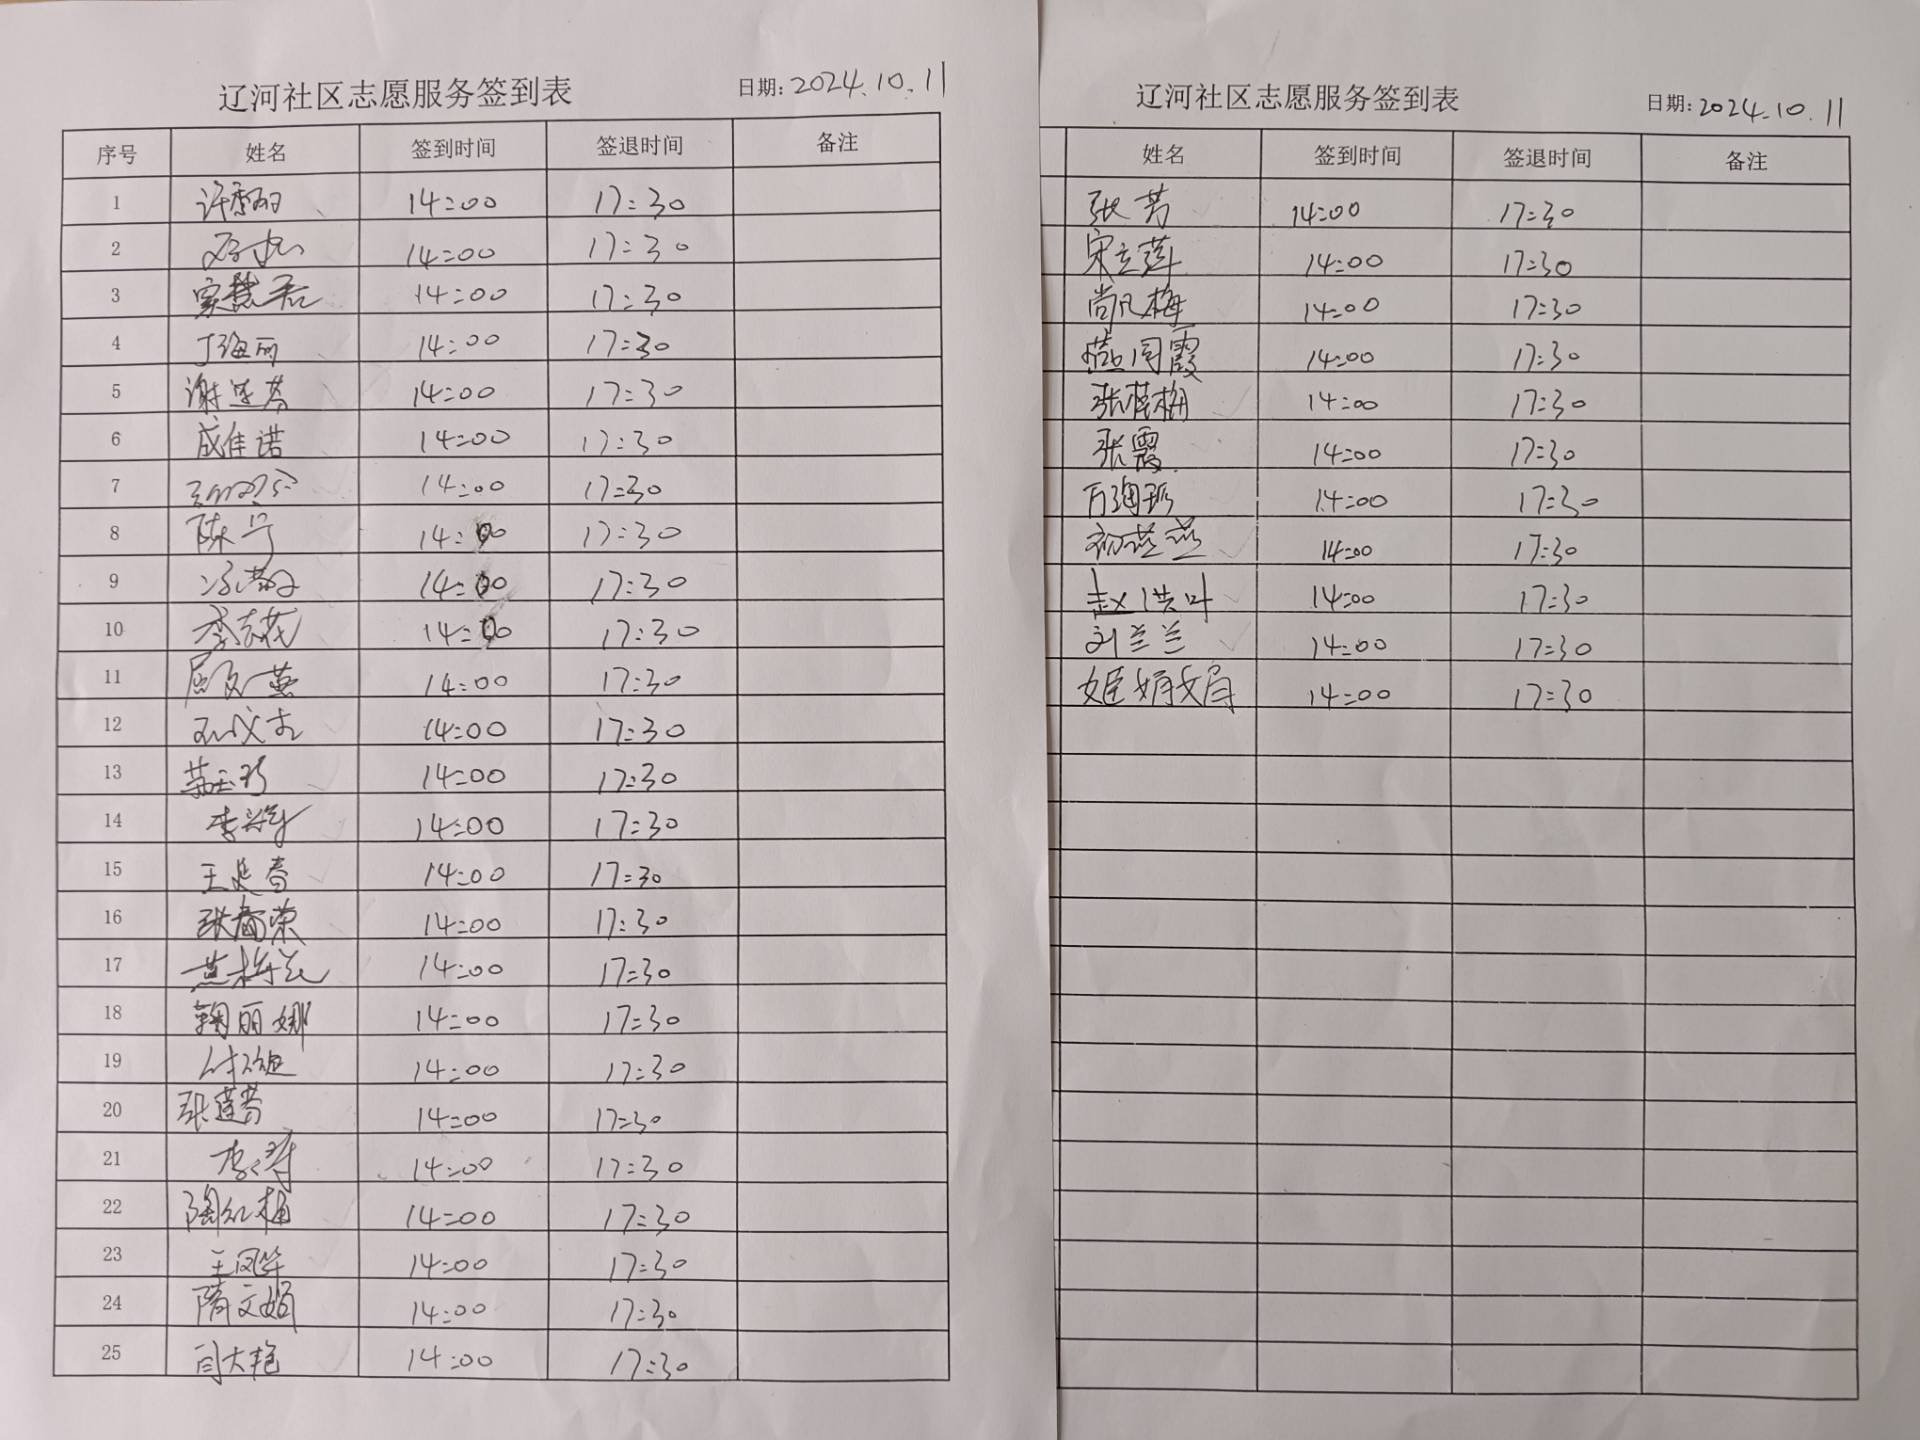 辽河社区志愿服务签到表 日期: 2024.10.11
序号 姓名 签到时间 签退时间 备注
1 14:00 17:30
2 14:00 17:30
3 14:00 17:30
4 丁海丽 14:00 17:30
5 谢莲芬 14:00 17:30
6 成佳诺 14:00 17:30
7 14:00 17:30
8 陈宁 14:00 17:30
9 14:00 17:30
10 李志花 14:00 17:30
11 14:00 17:30
12 14:00 17:30
13 14:00 17:30
14 14:00 17:30
15 王延春 14:00 17:30
16 张春荣 14:00 17:30
17 14:00 17:30
18 鞠丽娜 14:00 17:30
19 14:00 17:30
20 张莲芬 14:00 17:30
21 14:00 17:30
22 陶红梅 14:00 17:30
23 王凤华 14:00 17:30
24 隋文娟 14:00 17:30
25 闫大艳 14:00 17:30
辽河社区志愿服务签到表 日期: 2024.10.11
姓名 签到时间 签退时间 备注
张芳 14:00 17:30
宋立莲 14:00 17:30
尚凡梅 14:00 17:30
14:00 17:30
张桂梅 14:00 17:30
张霞 14:00 17:30
14:00 17:30
初燕燕 14:00 17:30
赵洪叶 14:00 17:30
刘兰兰 14:00 17:30
姬娟娟 14:00 17:30